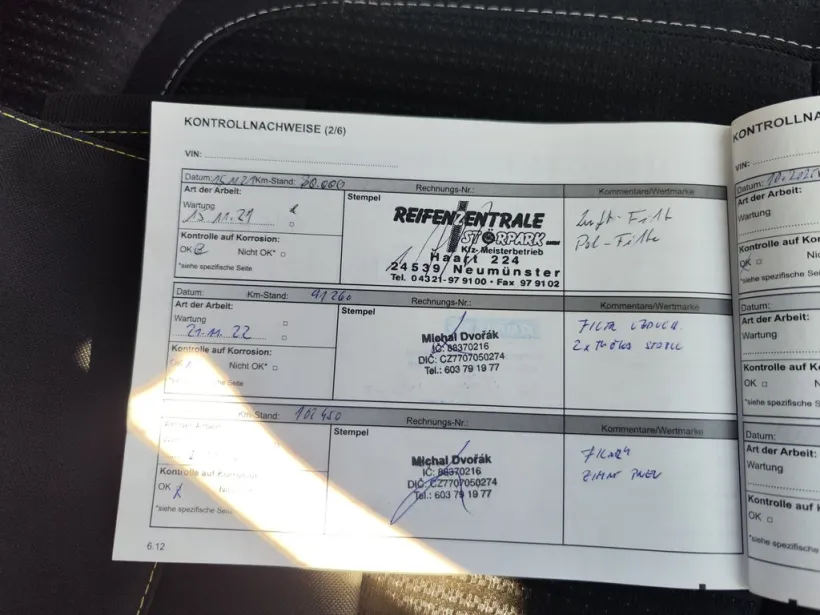 KONTROLLNACHWEISE (2/6)
VIN:
Datum: 15.11.21 Km-Stand: Rechnungs-Nr.: Kommentare/Wertmarke
Art der Arbeit:
Wartung
15.11.21
Kontrolle auf Korrosion:
OK Nicht OK*
*siehe spezifische Seite
Stempel
REIFENZENTRALE
STÖRPARK
Kfz-Meisterbetrieb
Haart 224
24539 Neumünster
Tel. 04321-979100 · Fax 979102
Luft-Filt
Pol-Filte
Datum: Km-Stand: 91260 Rechnungs-Nr.: Kommentare/Wertmarke
Art der Arbeit:
Wartung
21.11.22
Kontrolle auf Korrosion:
OK Nicht OK*
*siehe spezifische Seite
Stempel
Michal Dvořák
IČ: 88370216
DIČ: CZ7707050274
Tel.: 603 79 19 77
Km-Stand: 102450 Rechnungs-Nr.: Kommentare/Wertmarke
Art der Arbeit:
Kontrolle auf Korrosion:
OK
*siehe spezifische Seite
Stempel
Michal Dvořák
IČ: 88370216
DIČ: CZ7707050274
Tel.: 603 79 19 77
6.12
KONTROLLNA
VIN:
Datum:
Art der Arbeit:
Wartung
Kontrolle auf Kor
OK
*siehe spezifische
Datum:
Art der Arbeit:
Wartung
Kontrolle auf Ko
OK
*siehe spezifische
Datum:
Art der Arbeit:
Wartung
Kontrolle auf
OK
*siehe spezifische